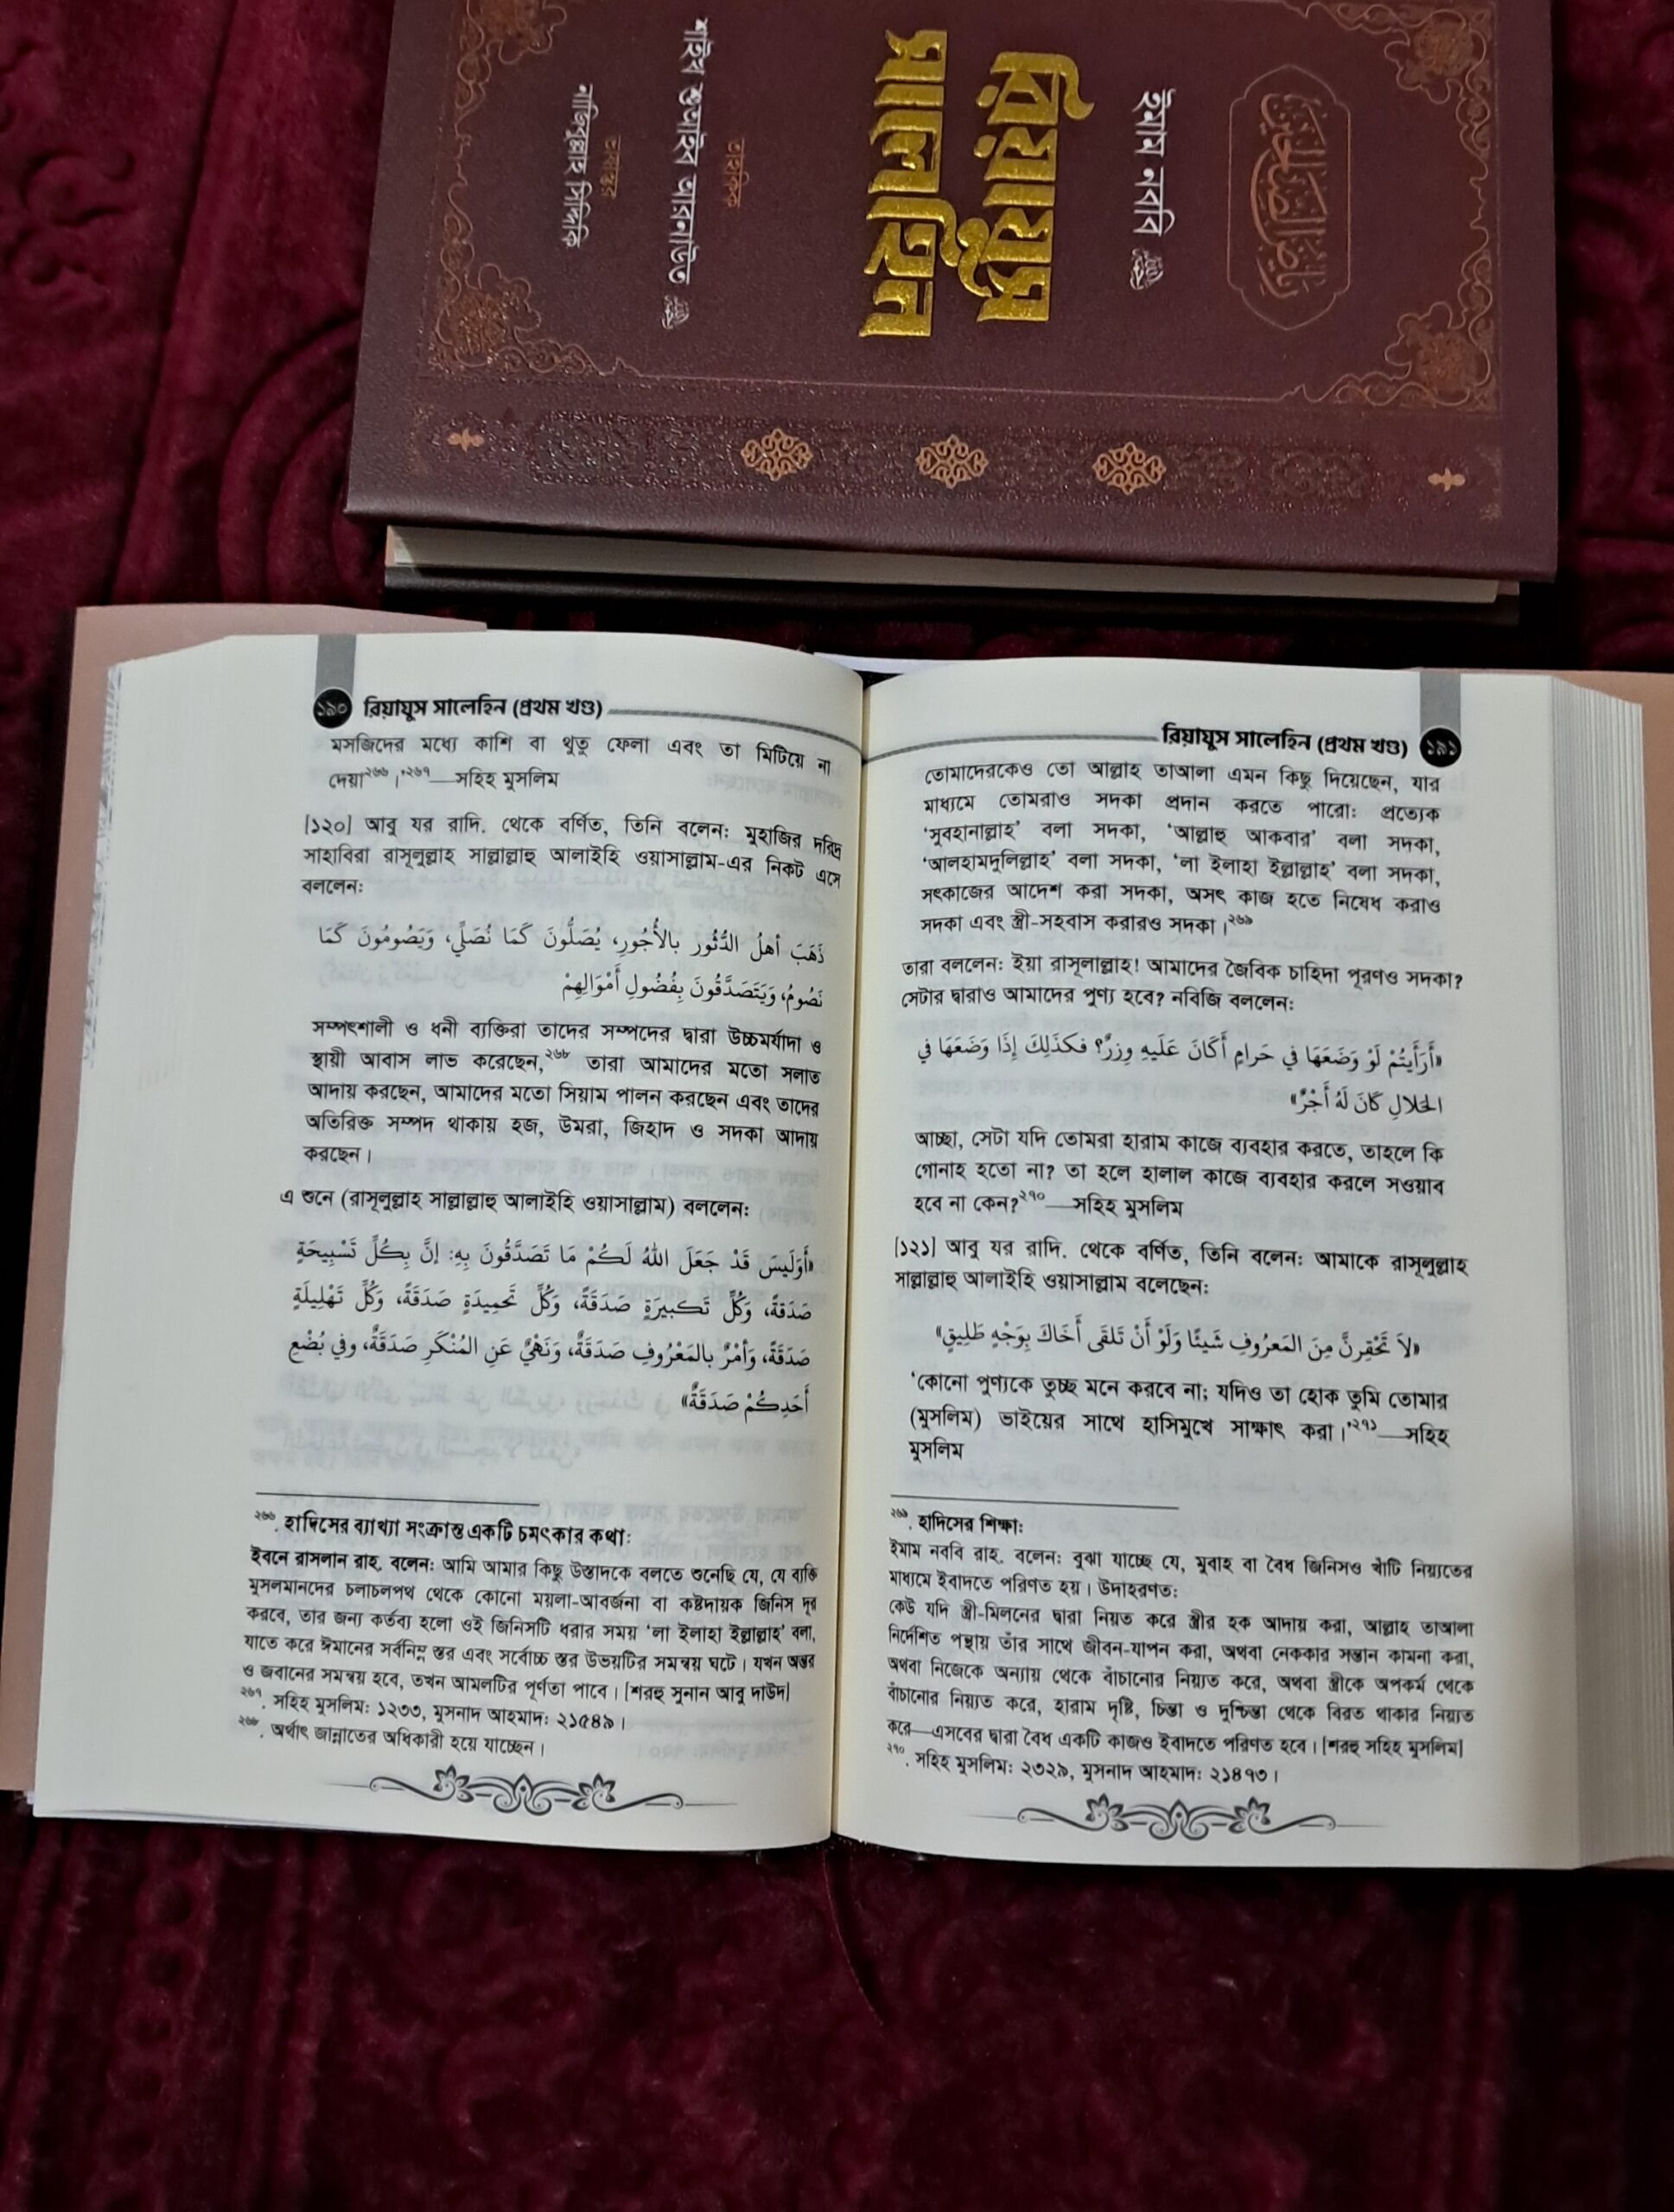 رياض الصالحين
ইমাম নববি
রিয়াযুস
সালেহিন
তাহকিক
শাইখ শুআইব আরনাউত
নাজিবুল্লাহ সিদ্দিকি
১৯০ রিয়াযুস সালেহিন (প্রথম খণ্ড)
মসজিদের মধ্যে কাশি বা থুতু ফেলা এবং তা মিটিয়ে না
দেয়া২৬৬।’২৬৭—সহিহ মুসলিম
[১২০] আবু যর রাদি. থেকে বর্ণিত, তিনি বলেন: মুহাজির দরিদ্র
সাহাবিরা রাসূলুল্লাহ সাল্লাল্লাহু আলাইহি ওয়াসাল্লাম-এর নিকট এসে
বললেন:
ذَهَبَ أهلُ الدُّثُور بالأُجُورِ، يُصَلُّونَ كَمَا نُصَلِّي، وَيَصُومُونَ كَمَا
نَصُومُ، وَيَتَصَدَّقُونَ بِفُضُولِ أَمْوَالِهِمْ
সম্পৎশালী ও ধনী ব্যক্তিরা তাদের সম্পদের দ্বারা উচ্চমর্যাদা ও
স্থায়ী আবাস লাভ করেছেন,২৬৮ তারা আমাদের মতো সলাত
আদায় করছেন, আমাদের মতো সিয়াম পালন করছেন এবং তাদের
অতিরিক্ত সম্পদ থাকায় হজ, উমরা, জিহাদ ও সদকা আদায়
করছেন।
এ শুনে (রাসূলুল্লাহ সাল্লাল্লাহু আলাইহি ওয়াসাল্লাম) বললেন:
«أَوَلَيسَ قَدْ جَعَلَ اللهُ لَكُمْ مَا تَصَدَّقُونَ بِهِ: إنَّ بِكُلِّ تَسْبِيحَةٍ
صَدَقةً، وَكُلِّ تَكبيرَةٍ صَدَقَةً، وَكُلِّ تَحمِيدَةٍ صَدَقَةً، وَكُلِّ تَهْلِيلَةٍ
صَدَقَةً، وَأمْرٌ بالمَعْرُوفِ صَدَقَةٌ، وَنَهْيٌ عَنِ المُنْكَرِ صَدَقَةٌ، وفي بُضْعِ
أَحَدِكُمْ صَدَقَةٌ»
২৬৬. হাদিসের ব্যাখ্যা সংক্রান্ত একটি চমৎকার কথা:
ইবনে রাসলান রাহ. বলেন: আমি আমার কিছু উস্তাদকে বলতে শুনেছি যে, যে ব্যক্তি
মুসলমানদের চলাচলপথ থেকে কোনো ময়লা-আবর্জনা বা কষ্টদায়ক জিনিস দূর
করবে, তার জন্য কর্তব্য হলো ওই জিনিসটি ধরার সময় ‘লা ইলাহা ইল্লাল্লাহ’ বলা,
যাতে করে ঈমানের সর্বনিম্ন স্তর এবং সর্বোচ্চ স্তর উভয়টির সমন্বয় ঘটে। যখন অন্তর
ও জবানের সমন্বয় হবে, তখন আমলটির পূর্ণতা পাবে। [শরহু সুনান আবু দাউদ]
২৬৭. সহিহ মুসলিম: ১২৩৩, মুসনাদ আহমাদ: ২১৫৪৯।
২৬৮. অর্থাৎ জান্নাতের অধিকারী হয়ে যাচ্ছেন।
রিয়াযুস সালেহিন (প্রথম খণ্ড) ১৯১
তোমাদেরকেও তো আল্লাহ তাআলা এমন কিছু দিয়েছেন, যার
মাধ্যমে তোমরাও সদকা প্রদান করতে পারো: প্রত্যেক
‘সুবহানাল্লাহ’ বলা সদকা, ‘আল্লাহু আকবার’ বলা সদকা,
‘আলহামদুলিল্লাহ’ বলা সদকা, ‘লা ইলাহা ইল্লাল্লাহ’ বলা সদকা,
সৎকাজের আদেশ করা সদকা, অসৎ কাজ হতে নিষেধ করাও
সদকা এবং স্ত্রী-সহবাস করারও সদকা।২৬৯
তারা বললেন: ইয়া রাসূলাল্লাহ! আমাদের জৈবিক চাহিদা পূরণও সদকা?
সেটার দ্বারাও আমাদের পুণ্য হবে? নবিজি বললেন:
«أَرَأَيتُمْ لَوْ وَضَعَهَا في حَرامٍ أَكَانَ عَلَيهِ وِزرٌ؟ فكَذلِكَ إِذَا وَضَعَهَا في
الحَلالِ كَانَ لَهُ أَجْرٌ»
আচ্ছা, সেটা যদি তোমরা হারাম কাজে ব্যবহার করতে, তাহলে কি
গোনাহ হতো না? তা হলে হালাল কাজে ব্যবহার করলে সওয়াব
হবে না কেন?২৭০—সহিহ মুসলিম
[১২১] আবু যর রাদি. থেকে বর্ণিত, তিনি বলেন: আমাকে রাসূলুল্লাহ
সাল্লাল্লাহু আলাইহি ওয়াসাল্লাম বলেছেন:
«لاَ تَحْقِرنَّ مِنَ المَعرُوفِ شَيئًا وَلَوْ أَنْ تَلقَى أَخَاكَ بِوَجْهٍ طَلِيقٍ»
‘কোনো পুণ্যকে তুচ্ছ মনে করবে না; যদিও তা হোক তুমি তোমার
(মুসলিম) ভাইয়ের সাথে হাসিমুখে সাক্ষাৎ করা।’২৭১—সহিহ
মুসলিম
২৬৯. হাদিসের শিক্ষা:
ইমাম নববি রাহ. বলেন: বুঝা যাচ্ছে যে, মুবাহ বা বৈধ জিনিসও খাঁটি নিয়্যতের
মাধ্যমে ইবাদতে পরিণত হয়। উদাহরণত:
কেউ যদি স্ত্রী-মিলনের দ্বারা নিয়ত করে স্ত্রীর হক আদায় করা, আল্লাহ তাআলা
নির্দেশিত পন্থায় তাঁর সাথে জীবন-যাপন করা, অথবা নেককার সন্তান কামনা করা,
অথবা নিজেকে অন্যায় থেকে বাঁচানোর নিয়্যত করে, অথবা স্ত্রীকে অপকর্ম থেকে
বাঁচানোর নিয়্যত করে, হারাম দৃষ্টি, চিন্তা ও দুশ্চিন্তা থেকে বিরত থাকার নিয়্যত
করে—এসবের দ্বারা বৈধ একটি কাজও ইবাদতে পরিণত হবে। [শরহু সহিহ মুসলিম]
২৭০. সহিহ মুসলিম: ২৩২৯, মুসনাদ আহমাদ: ২১৪৭৩।